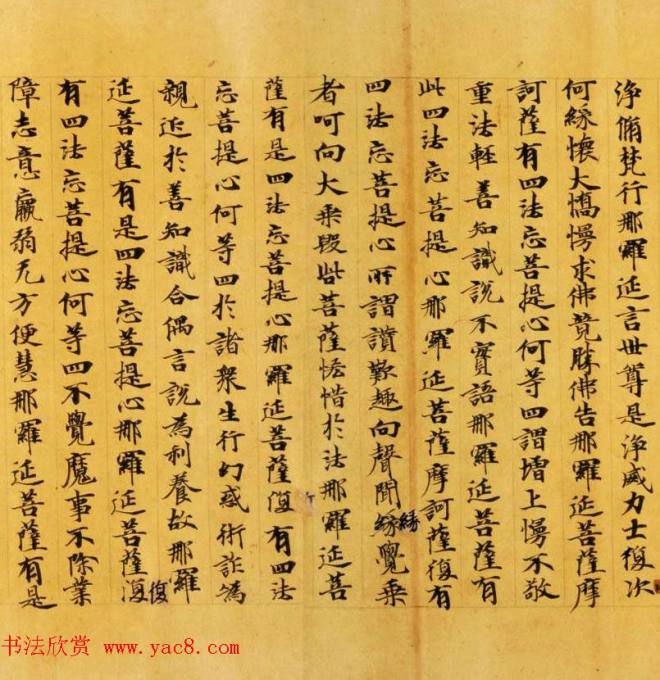 淨脩梵行那羅延言世尊是淨威力士復次
何緣懷大憍慢求佛竟勝佛告那羅延菩薩摩
訶薩有四法忘菩提心何等四謂增上慢不敬
重法輕善知識說不實語那羅延菩薩有
此四法忘菩提心那羅延菩薩摩訶薩復有
四法忘菩提心所謂讚歎趣向聲聞緣覺乘
緣
者呵向大乘毀呰菩薩悋惜於法那羅延菩
薩有是四法忘菩提心那羅延菩薩復有四法
忘菩提心何等四於諸眾生行幻惑術詐為
親近於善知識合偶言說為利養故那羅
復
延菩薩有是四法忘菩提心那羅延菩薩復
有四法忘菩提心何等四不覺魔事不除業
障志意羸弱无方便慧那羅延菩薩有是
书法欣赏 www.yac8.com